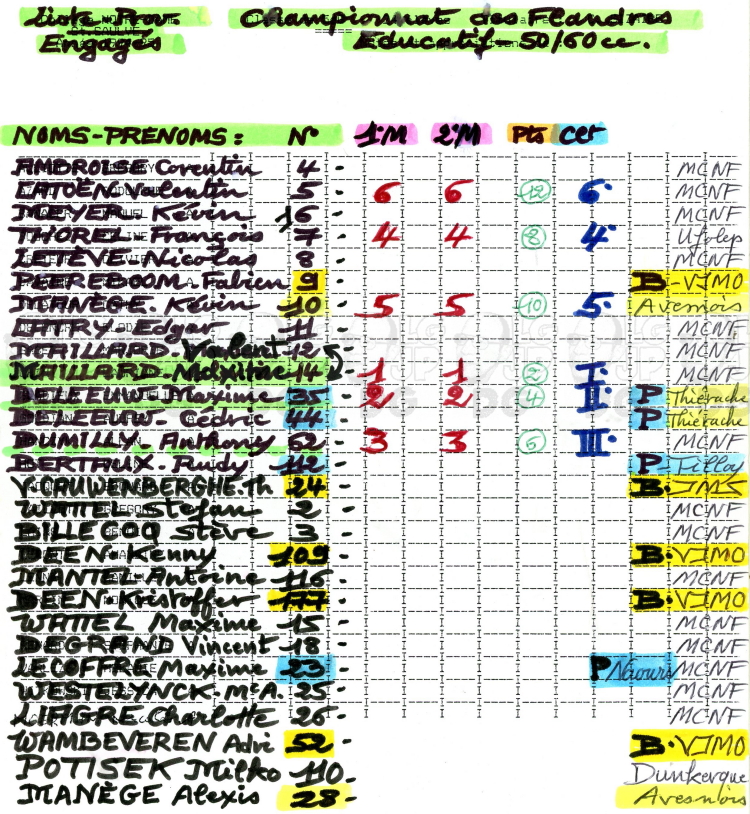 Liste Prov. Championnat des Flandres
Engagés Educatif - 50/60cc.
NOMS-PRENOMS: N° 1°M 2°M Pts Cet
AMBROISE Corentin 4 - MCNF
LATOËN Valentin 5 - 6 6 12 6. MCNF
MEYER. Kévin 16 - MCNF
THOREL François 7 - 4 4 8 4. Ufolep
LETÈVE Nicolas 8 - MCNF
PEEREBOOM Fabien 9 - B-VJMO
MANÈGE. Kévin 10 - 5 5 10 5. Avesnois
Edgar 11 - MCNF
MAILLARD. 12 - MCNF
MAILLARD - Maxime 14 - 1 1 2 I. MCNF
DELEEUW. Maxime 35 - 2 2 4 II. P Thiérache
DELEEUW. Cédric 44 - P Thiérache
DUMILLY. Anthony 62 - 3 3 6 III. MCNF
BERTAUX. Rudy 112 - P Tilloy
V.CAUWENBERGHE.Th 24 - B. JMS
WATTEL Stefan 2 - MCNF
BILLECOQ Stève 3 - MCNF
DEEN. Kenny 109 - B. VJMO
MANTEL Antoine 116 - MCNF
DEEN. Kristoffer 177 - B. VJMO
WATTEL Maxime 15 - MCNF
DEGRAND Vincent 18 - MCNF
LECOFFRE Maxime 23 - P Naours MCNF
WESTELYNCK. M.A. 25 - MCNF
LIAGRE Charlotte 26 - MCNF
WAMBEVEREN Adri 52 - B. VJMO
POTISEK Milko 110 - Dunkerque
MANÈGE Alexis 28 - Avesnois